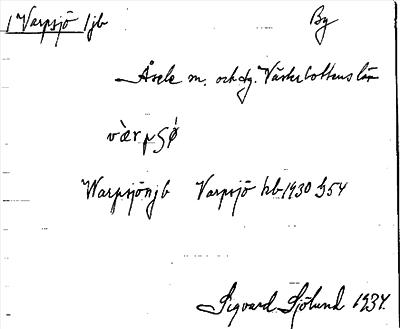 1 Varpsjö 1jb By
Åsele sn. och dg. Västerbottens län
Warpsjön jb Varpsjö kb 1930 s 54
Sigvard Sjölund 1934.